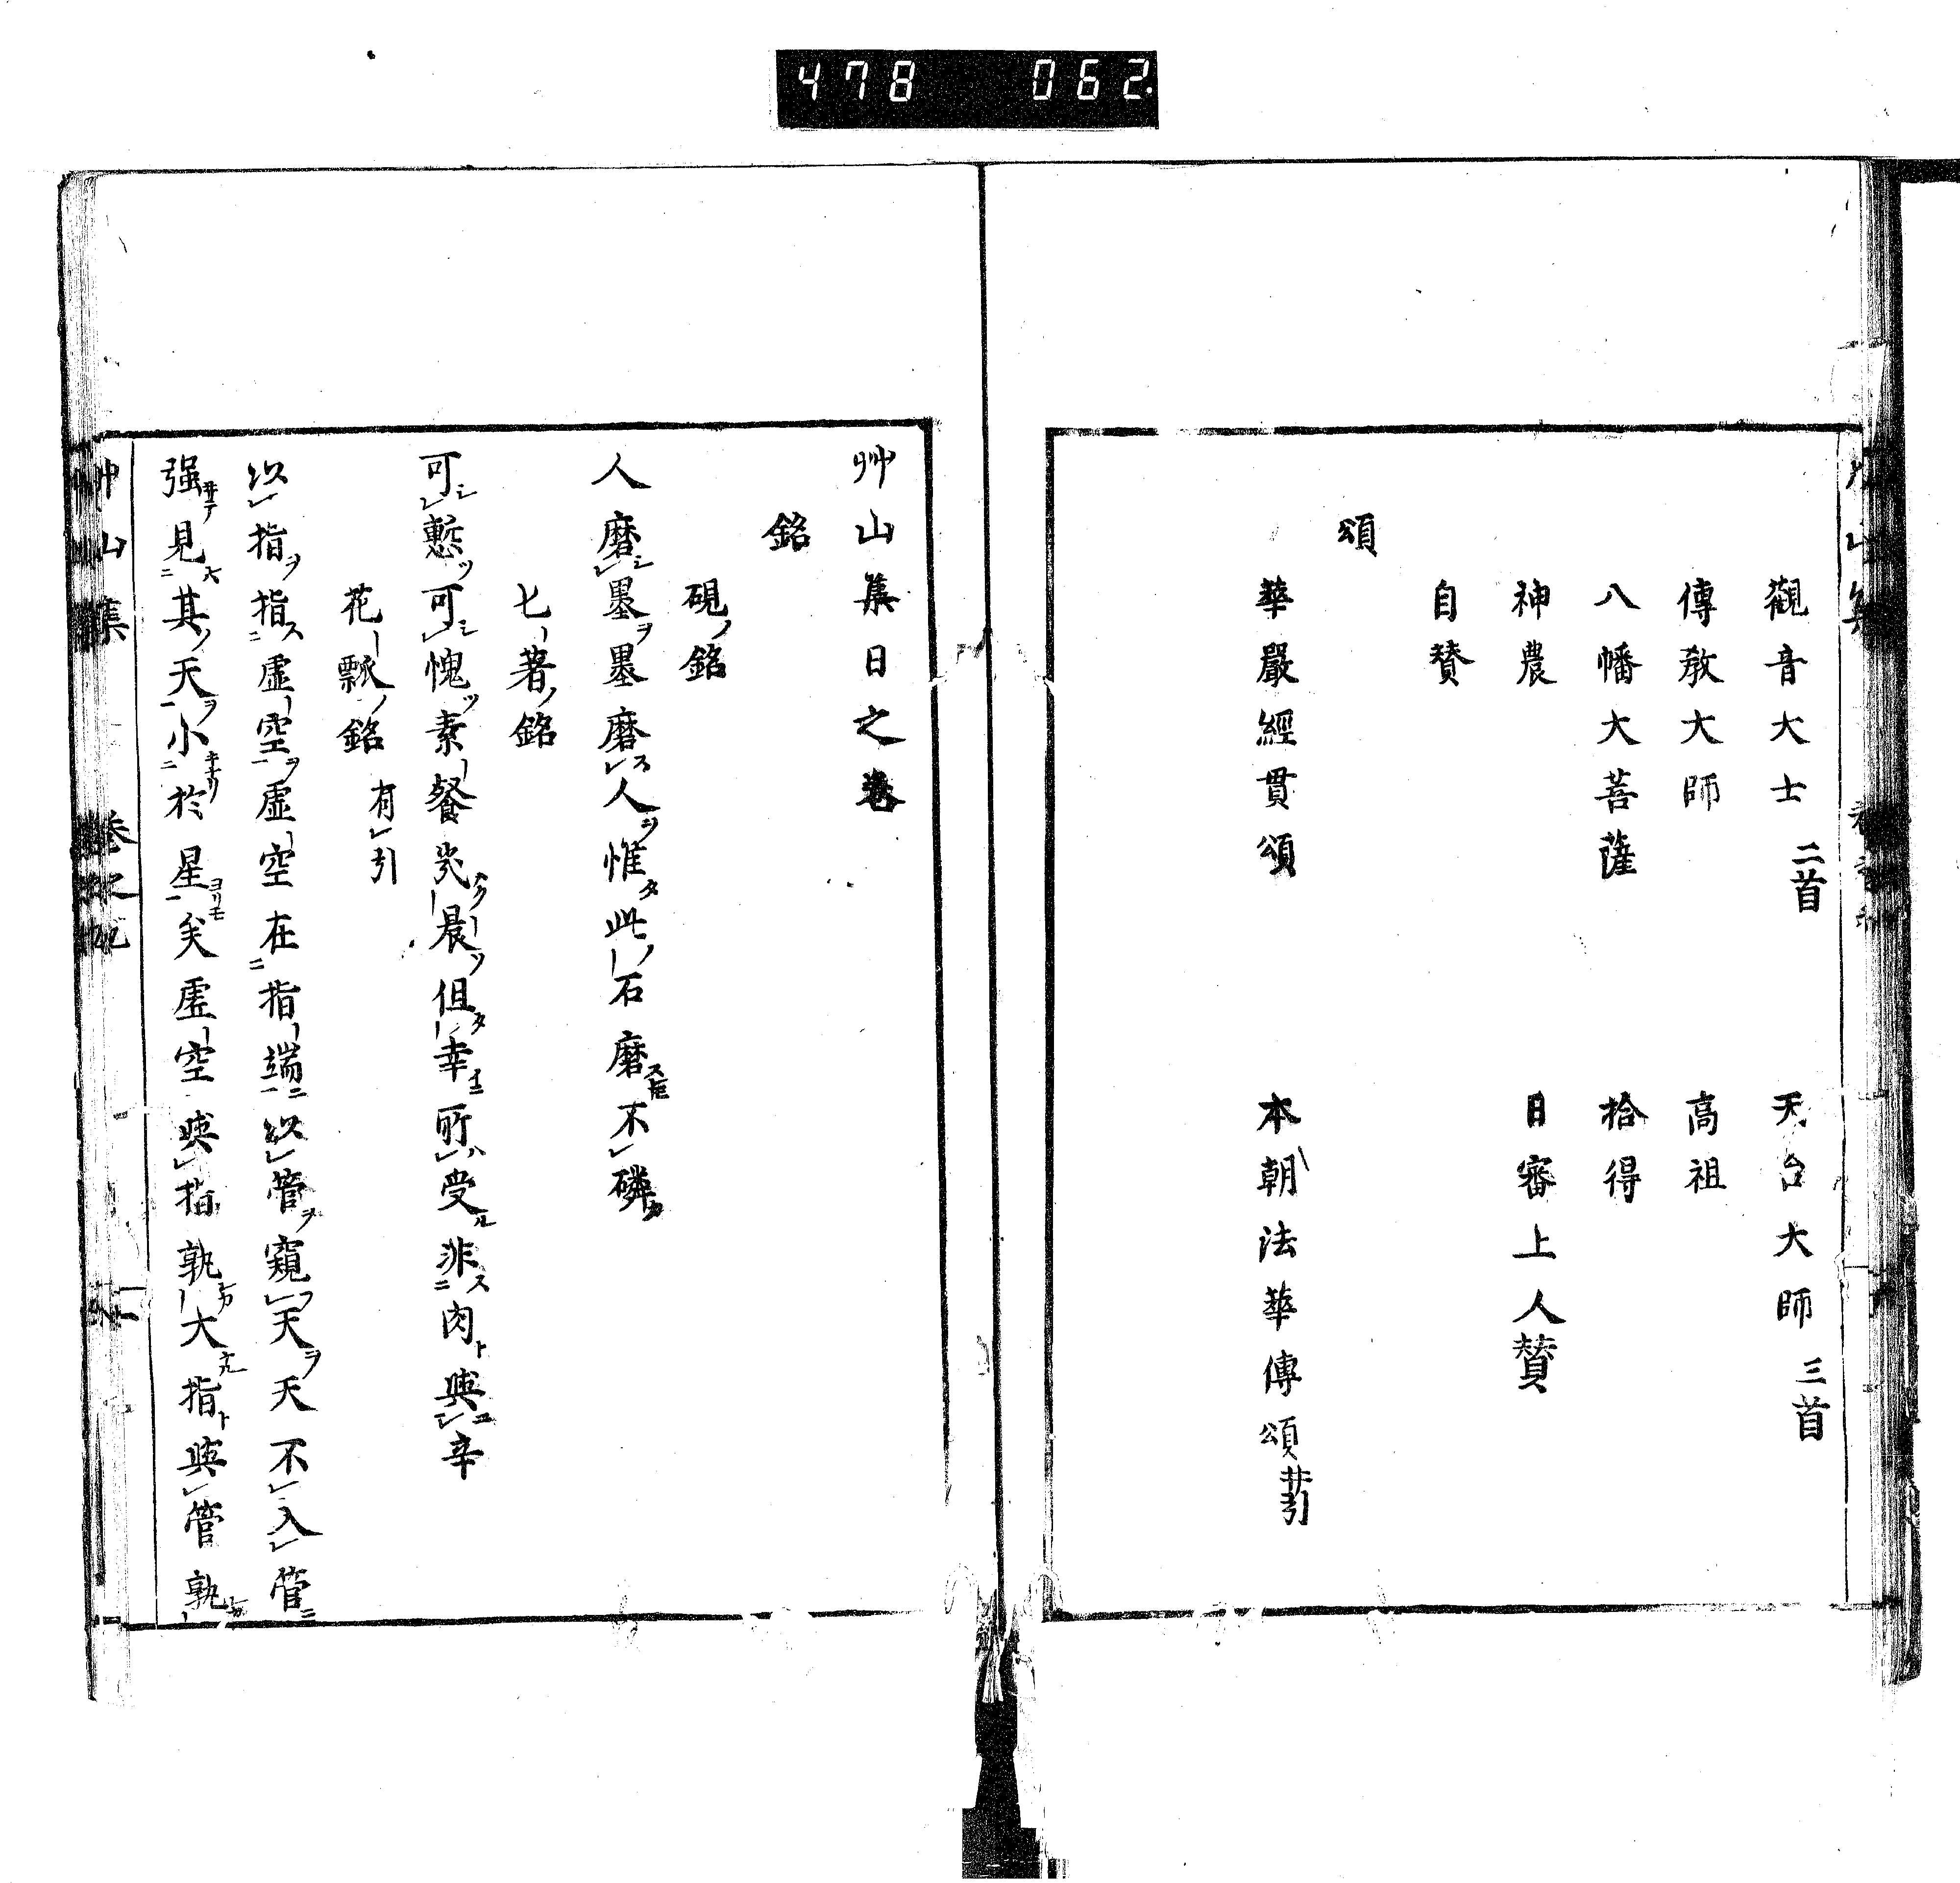 478 062
觀音大士 二首 天台大師 三首
傳教大師 高祖
八幡大菩薩 拾得
神農 日審上人賛
自賛
頌
華嚴經貫頌 本朝法華傳頌 并引
艸山集日之卷
銘
硯ノ銘
人磨墨墨磨人惟此石磨不磷
匕著ノ銘
可慙可愧素餐炗晨但幸所受非肉與辛
花瓢ノ銘 有引
以指指虛空虛空在指端以管窺天天不入管
强見其天小於星矣虛空與指孰大指與管孰
艸山集 卷之 一